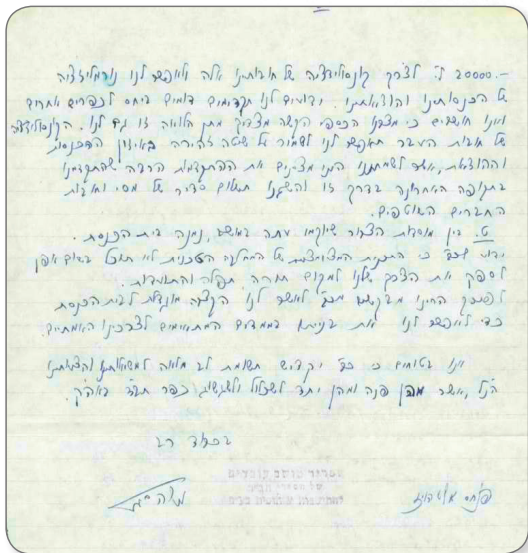 20000.— ל"י לצרך קונסולידציה של חובותינו אלה ולאפשר לנו נורמליזציה
של הכנסותינו והוצאותינו. ידועים לנו תקדימים דומים ביחס לכפרים אחרים
ואנו חושבים כי מצבנו הכספי הקשה מצדיק מתן הלואה זו גם לנו. הקונסולידציה
של חובות העבר תאפשר לנו לשמור על שיטה זהירה באיזון ההכנסות
וההוצאות, אשר לשמחתנו הננו מציינים את ההתקדמות הרבה שהתקדמנו
בתקופה האחרונה בדרך זו והשגנו תשלום סדיר של מסי וחובות
החברים השוטפים.
ט. בין מוסדות הצבור שיוקמו עתה במושב, נמנה בית הכנסת.
ידוע לכם כי התכנית המצומצמת של המחלקה הטכנית לא תוכל בשום אופן
לספק את הצרך שלנו למקום תורה, תפלה והתועדות.
לפיכך היינו מבקשים מכם לאשר לנו הקצבה מוגדלת לבית הכנסת
כדי לאפשר לנו את בניתו בממדים המתאימים לצרכינו האמתיים.
אנו בטוחים כי כב' יקדיש תשומת לב מלאה למשאלותנו והצעותנו
הנ"ל, אשר מהן פנה ומהן יתד לשכלול ולשגשוג כפר חב"ד באה"ק.
בכבוד רב
פנחס
משה